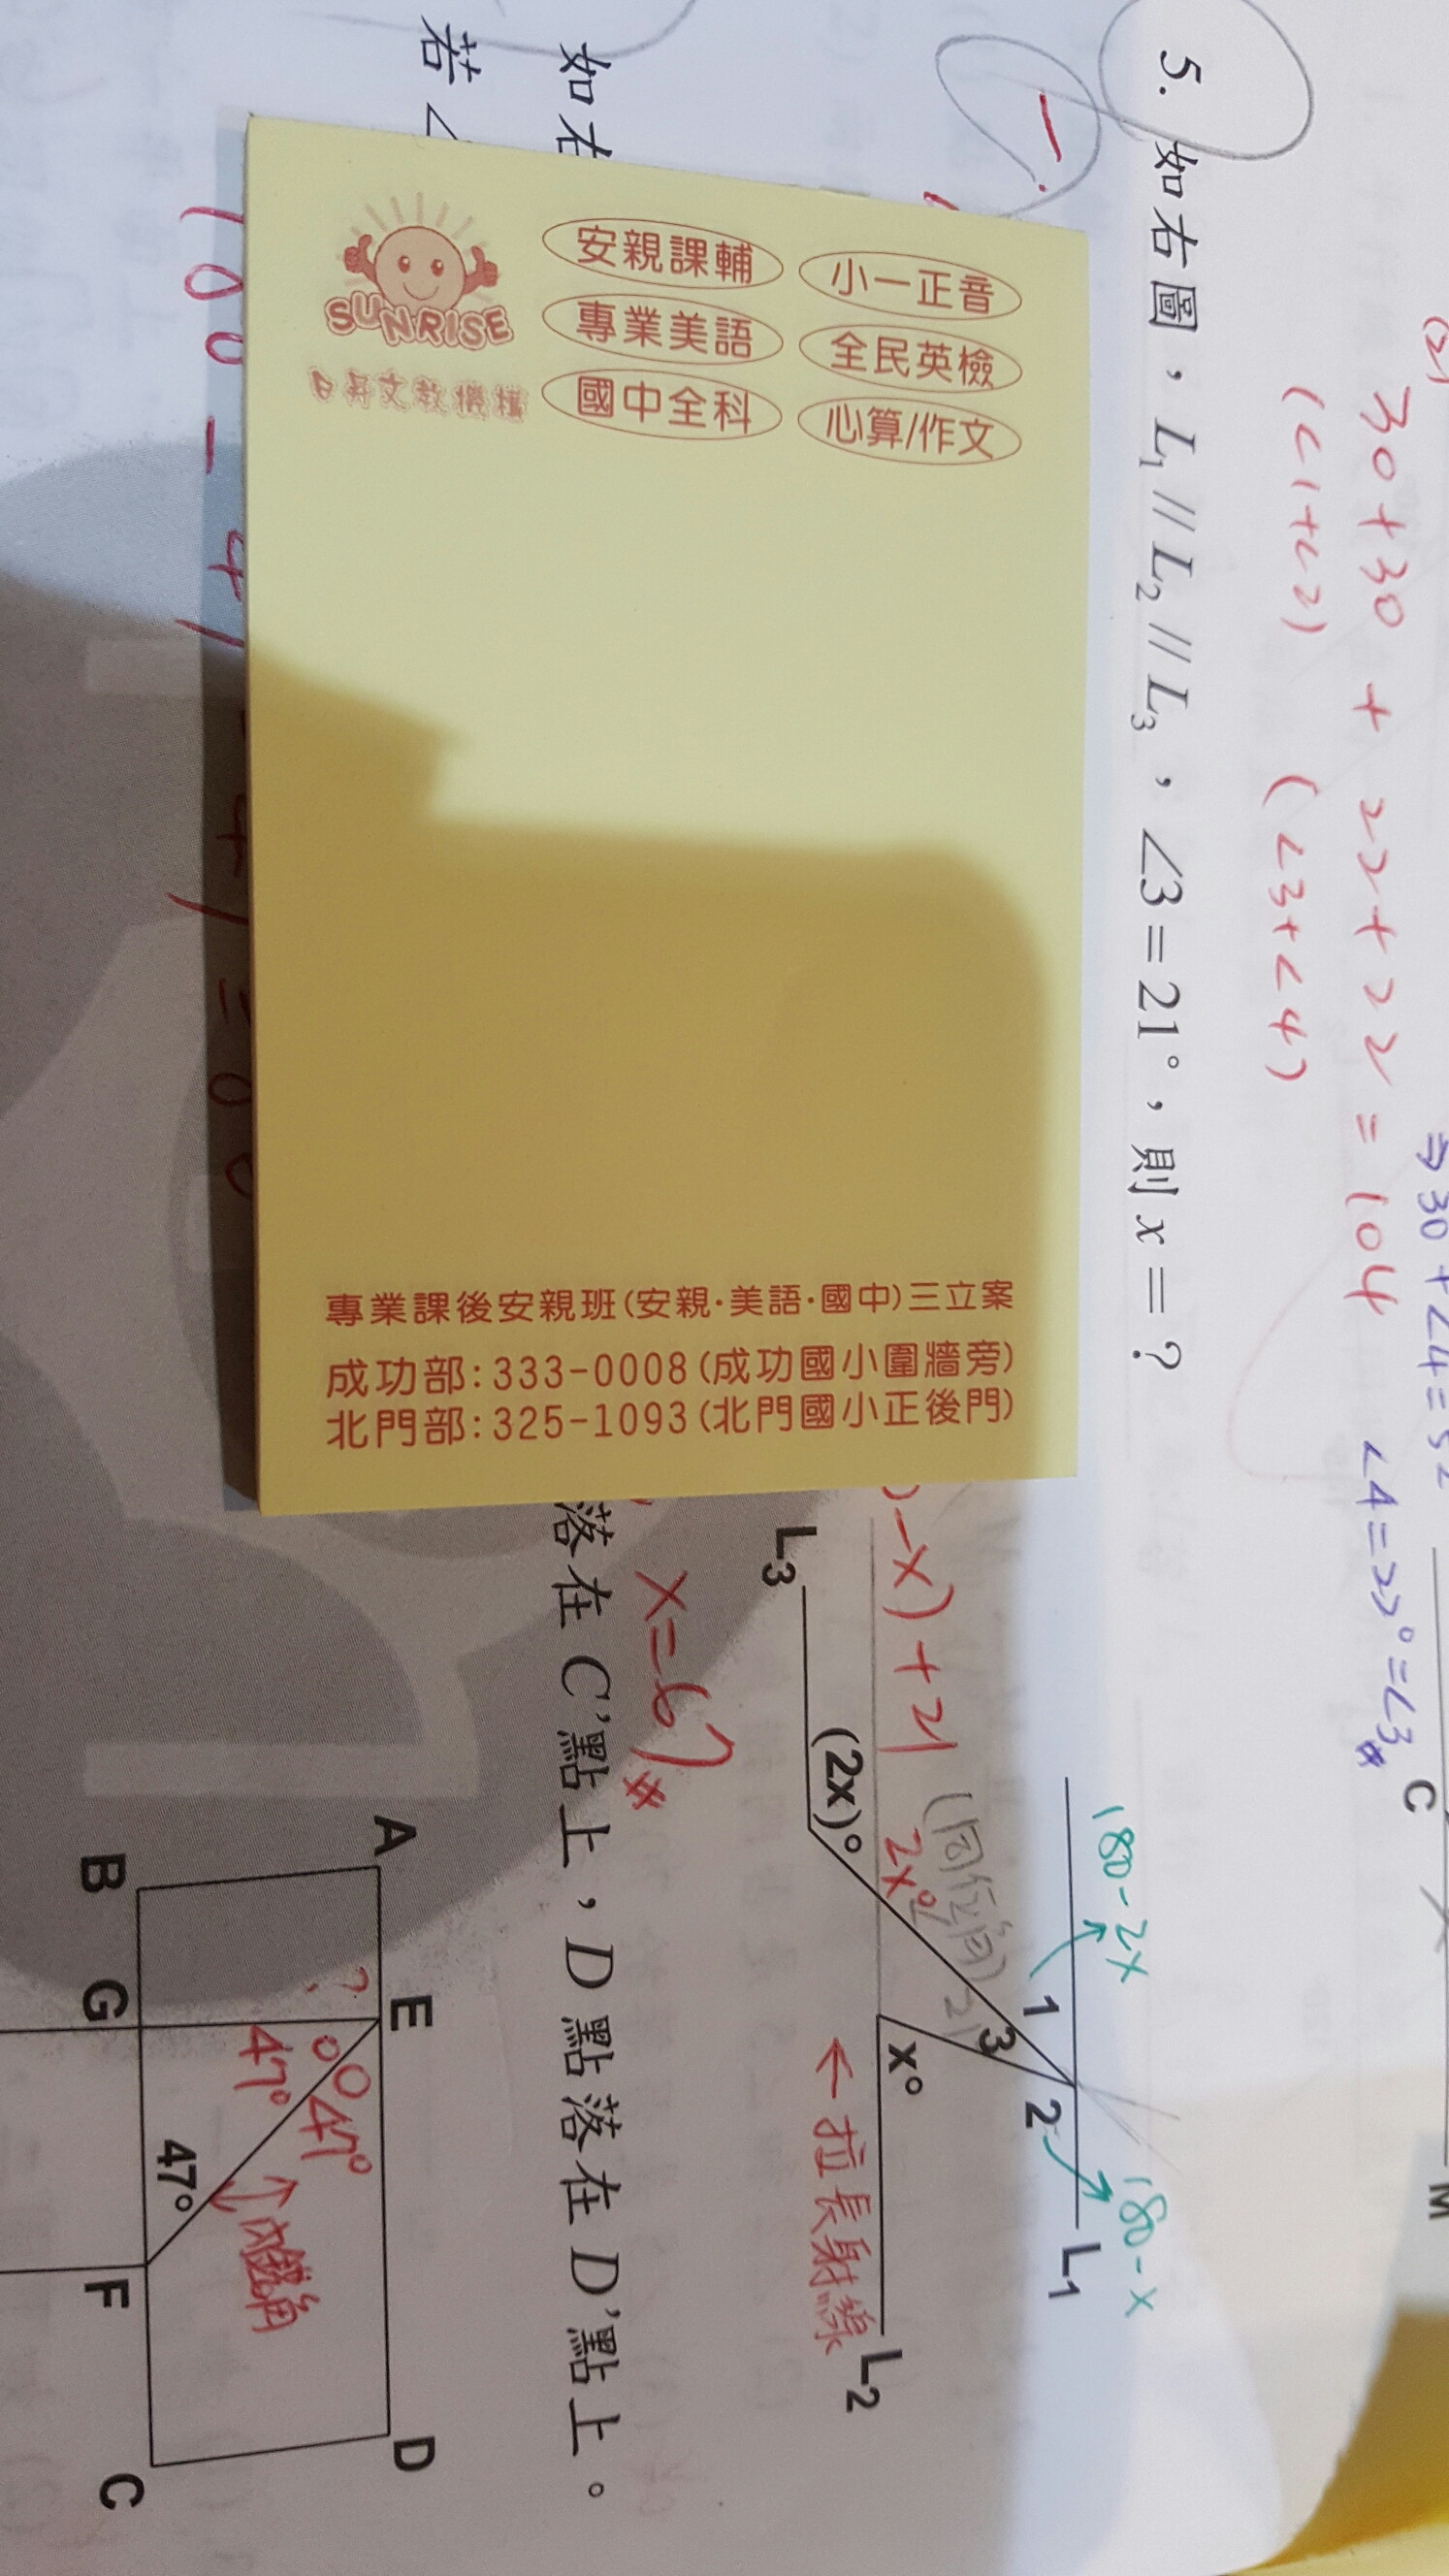 (2)
⇒30+∠4=52
30+30+22+22=104 ∠4=22°=∠3#
(∠1+∠2) (∠3+∠4)
C
M
5. 如右圖，L1 // L2 // L3，∠3=21°，則x=？
180-2x
180-x
1
2
L1
3
(同位角)
21
-x)+21
2x°
x°
L2
L3
(2x)°
←拉長射線
x=67#
小一正音
全民英檢
心算/作文
安親課輔
專業美語
國中全科
SUNRISE
日昇文教機構
專業課後安親班(安親·美語·國中)三立案
成功部:333-0008(成功國小圍牆旁)
北門部:325-1093(北門國小正後門)
如右
落在C'點上，D點落在D'點上。
若∠
A
E
D
?
47°
47°
內錯角
47°
B
G
F
C